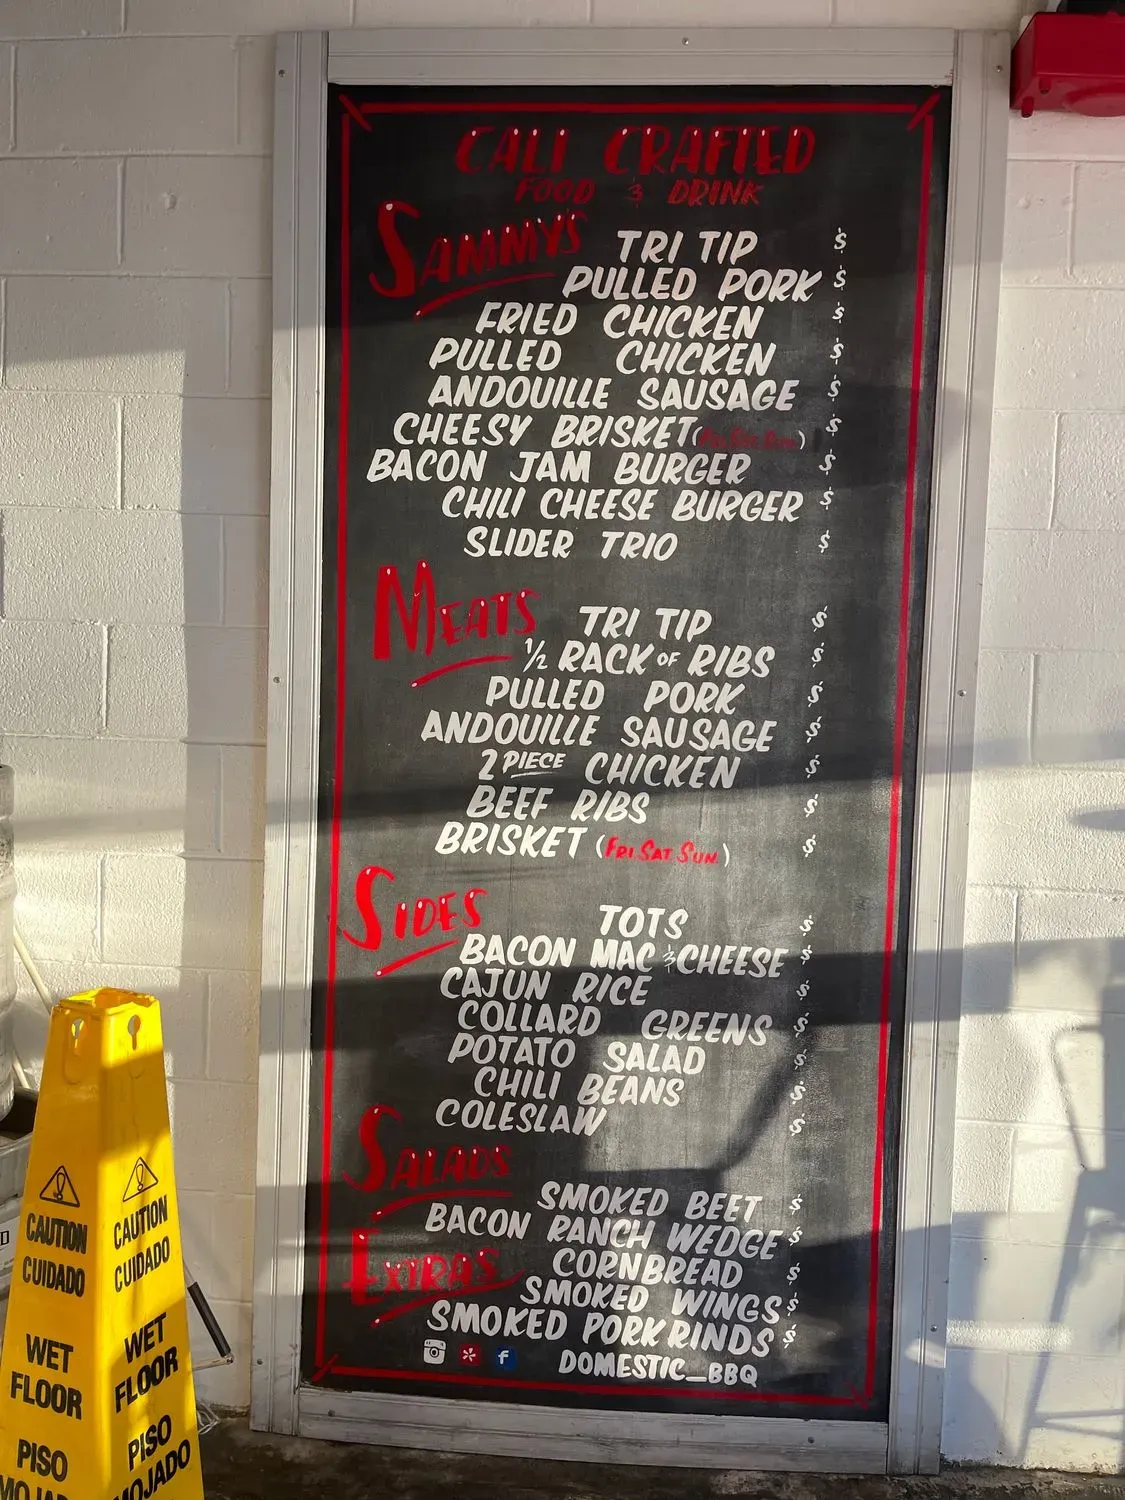 CALI CRAFTED
FOOD & DRINK
SAMMYS
TRI TIP $
PULLED PORK $
FRIED CHICKEN $
PULLED CHICKEN $
ANDOUILLE SAUSAGE $
CHEESY BRISKET (FRI SAT SUN) $
BACON JAM BURGER $
CHILI CHEESE BURGER $
SLIDER TRIO $
MEATS
TRI TIP $
½ RACK OF RIBS $
PULLED PORK $
ANDOUILLE SAUSAGE $
2 PIECE CHICKEN $
BEEF RIBS $
BRISKET (FRI SAT SUN) $
SIDES
TOTS $
BACON MAC & CHEESE $
CAJUN RICE $
COLLARD GREENS $
POTATO SALAD $
CHILI BEANS $
COLESLAW $
SALADS
SMOKED BEET $
BACON RANCH WEDGE $
EXTRAS
CORNBREAD $
SMOKED WINGS $
SMOKED PORK RINDS $
f
DOMESTIC_BBQ
CAUTION
CUIDADO
WET
FLOOR
PISO
CAUTION
CUIDADO
WET
FLOOR
PISO
MOJADO